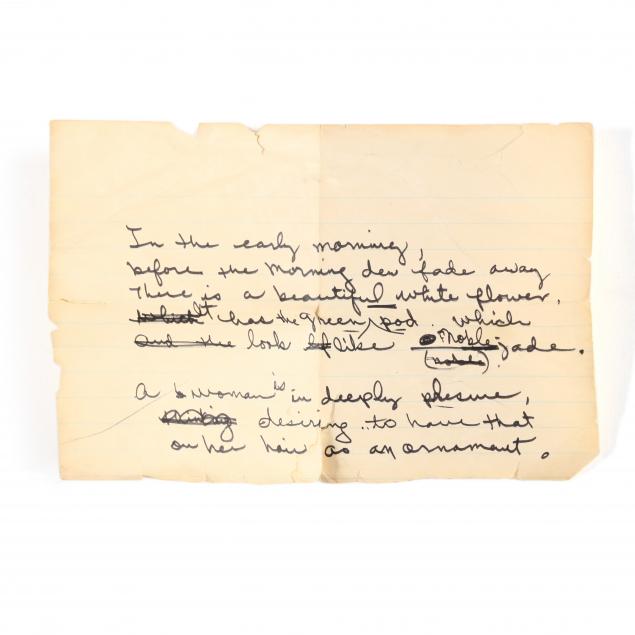 In the early morning,
before the morning dew fade away
There is a beautiful white flower.
It has the green pod which
and the look like noble jade.
(noble)
A woman is in deeply plesure,
desiring to have that
on her hair as an ornamaut.